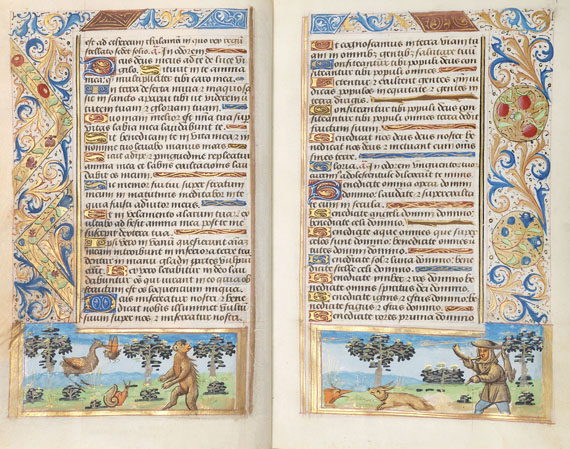 est ad ethereum thalamum in quo rex regum
stellato sedet solio. In odorem
Deus deus meus ad te de luce vi
gilo. Sitivit in te anima
mea quam multipliciter tibi caro mea.
In terra deserta invia et inaquosa
sic in sancto apparui tibi ut viderem vir
tutem tuam et gloriam tuam.
Quoniam melior est misericordia tua super
vitas labia mea laudabunt te.
Sic benedicam te in vita mea et in
nomine tuo levabo manus meas.
Sicut adipe et pinguedine repleatur
anima mea et labiis exultationis lau
dabit os meum.
Si memor fui tui super stratum
meum in matutinis meditabor in te
quia fuisti adiutor meus.
Et in velamento alarum tuarum ex
ultabo adhesit anima mea post te me
suscepit dextera tua.
Ipsi vero in vanum quesierunt anima
meam introibunt in inferiora terre tra
dentur in manus gladii partes vulpium
erunt. Rex vero letabitur in deo lau
dabuntur omnes qui iurant in eo quia ob
structum est os loquentium iniqua.
Deus misereatur nostri et bene
dicat nobis illuminet vultum
suum super nos et misereatur nostri.
Ut cognoscamus in terra viam tu
am in omnibus gentibus salutare tuum
Confiteantur tibi populi deus con
fiteantur tibi populi omnes
Letentur et exultent gentes quoniam iu
dicas populos in equitate et gentes in
terra dirigis.
Confiteantur tibi populi deus con
fiteantur tibi populi omnes terra dedit
fructum suum
Benedicat nos deus deus noster be
nedicat nos deus et metuant eum omnes
fines terre
Gloria. In odorem unguentorum tuo
rum adolescentule dilexerunt te nimis
Benedicite omnia opera domini
domino laudate et superexalta
te eum in secula.
Benedicite angeli domini domino
benedicite celi domino.
Benedicite aque omnes que super
celos sunt domino benedicite omnes
virtutes domini domino
Benedicite sol et luna domino bene
dicite stelle celi domino.
Benedicite imber et ros domino be
nedicite omnes spiritus dei domino
Benedicite ignis et estus domino be
nedicite